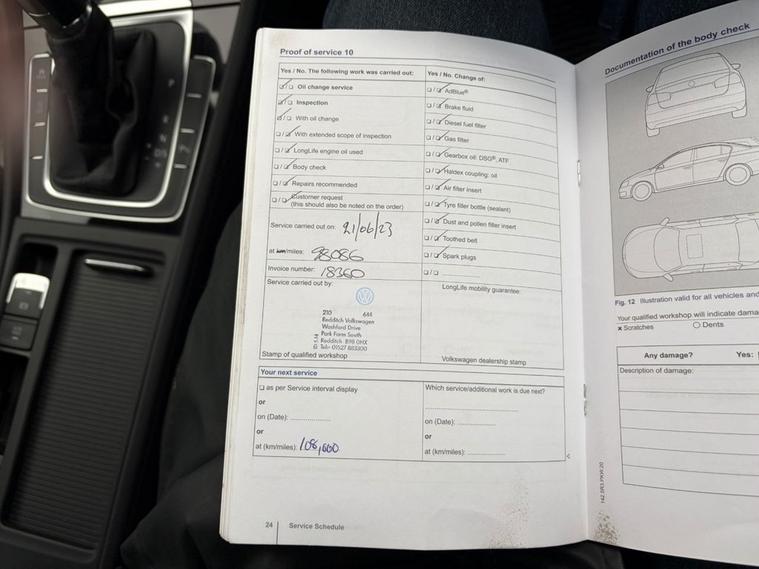 Proof of service 10
Yes / No. The following work was carried out:
Oil change service
Inspection
With oil change
With extended scope of inspection
LongLife engine oil used
Body check
Repairs recommended
Customer request
(this should also be noted on the order)
Service carried out on: 21/06/23
at km/miles: 98086
Invoice number: 18360
Service carried out by:
210 644
Redditch Volkswagen
Washford Drive
Park Farm South
Redditch B98 0HX
Tel: 01527 883300
Stamp of qualified workshop
Yes / No. Change of:
AdBlue®
Brake fluid
Diesel fuel filter
Gas filter
Gearbox oil: DSG®, ATF
Haldex coupling: oil
Air filter insert
Tyre filler bottle (sealant)
Dust and pollen filter insert
Toothed belt
Spark plugs
LongLife mobility guarantee:
Volkswagen dealership stamp
Your next service
as per Service interval display
or
on (Date):
or
at (km/miles): 108,000
Which service/additional work is due next?
on (Date):
or
at (km/miles):
24 Service Schedule
Documentation of the body check
Fig. 12 Illustration valid for all vehicles and
Your qualified workshop will indicate dama
x Scratches O Dents
Any damage? Yes:
Description of damage:
P
R
N